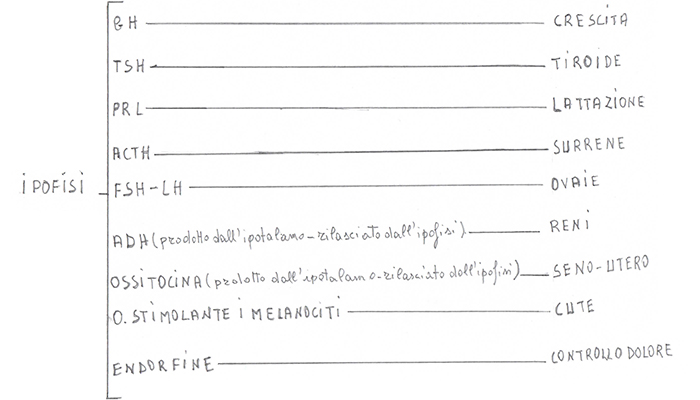 GH CRESCITA
TSH TIROIDE
PRL LATTAZIONE
ACTH SURRENE
IPOFISI FSH-LH OVAIE
ADH (prodotto dall'ipotalamo-rilasciato dall'ipofisi) RENI
OSSITOCINA (prodotto dall'ipotalamo-rilasciato dall'ipofisi) SENO-UTERO
O. STIMOLANTE I MELANOCITI CUTE
ENDORFINE CONTROLLO DOLORE